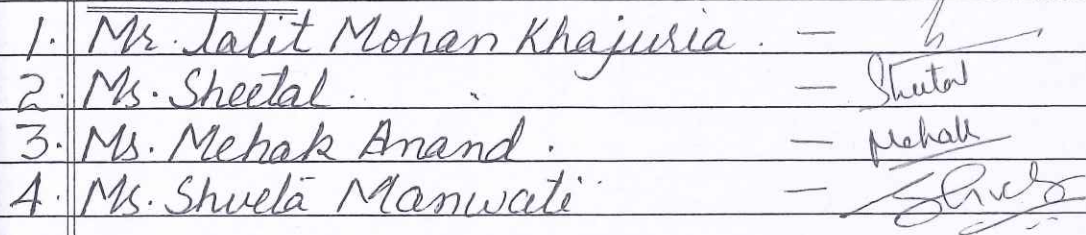 1. Mr. Lalit Mohan Khajuria. -
2. Ms. Sheetal. - Sheetal
3. Ms. Mehak Anand. - Mehak
4. Ms. Shvetā Manwati -